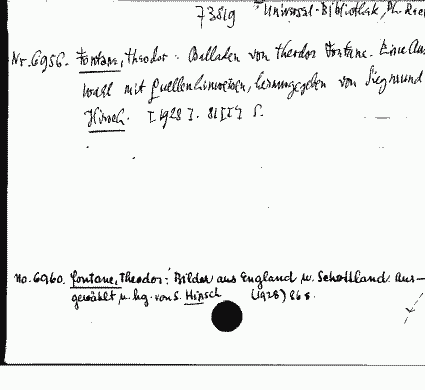 73819 Universal-Bibliothek, Ph. Rec
Nr. 6956. Fontane, Theodor: Balladen von Theodor Fontane. Eine Aus
wahl mit Quellenhinweisen, herausgegeben von Siegmund
Hirsch. [1928].  S.
No. 6960. Fontane, Theodor: Bilder aus England u. Schottland. Aus-
gewählt u. hg. von S. Hirsch (1928) 86 S.